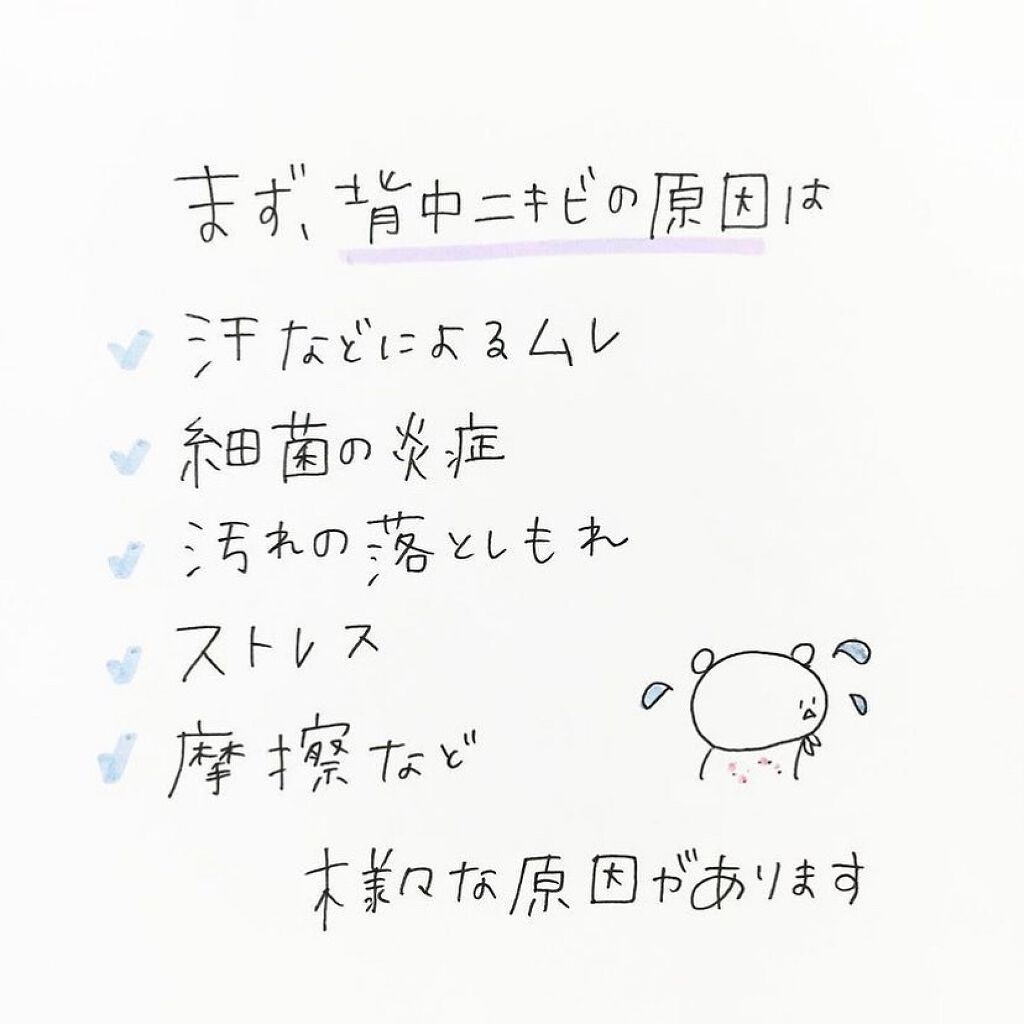 まず、背中ニキビの原因は
汗などによるムレ
細菌の炎症
汚れの落としもれ
ストレス
摩擦など
様々な原因があります